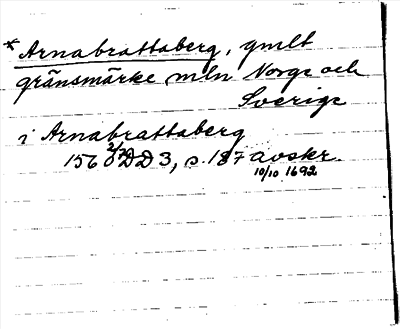 * Arnabrattaberg, gmlt
gränsmärke mln Norge och
Sverige
i Arnabrattaberg
1560 2/7 DD 3, s. 187 avskr.
10/10 1692